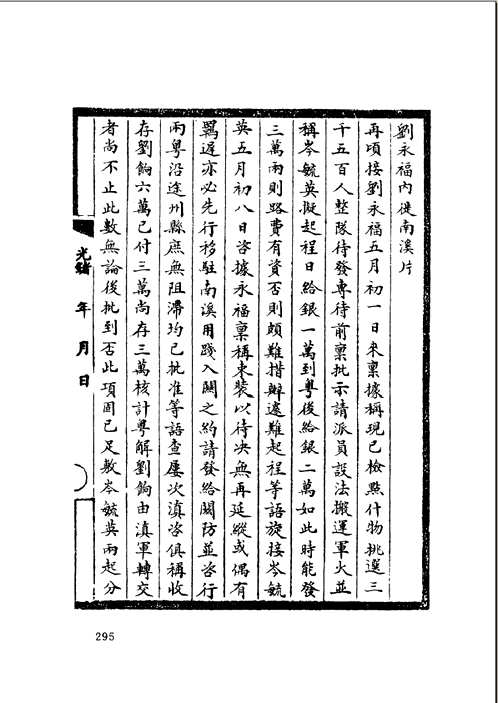 劉永福內徙南溪片
再頃接劉永福五月初一日來稟據稱現已檢點什物挑選三
千五百人整隊待發專待前稟批示請派員設法搬運軍火並
稱岑毓英擬起程日給銀一萬到粵後給銀二萬如此時能發
三萬兩則路費有資否則頗難措辦遽難起程等語旋接岑毓
英五月初八日咨據永福稟稱束裝以待决無再延縱或偶有
羁遲亦必先行移駐南溪用踐入關之約請發給關防並咨行
兩粵沿途州縣庶無阻滯均已批准等語查屢次滇咨俱稱收
存劉餉六萬已付三萬尚存三萬核計粵解劉餉由滇軍轉交
者尚不止此數無論後批到否此項固已足敷岑毓英兩起分
光緒 年 月 日
295